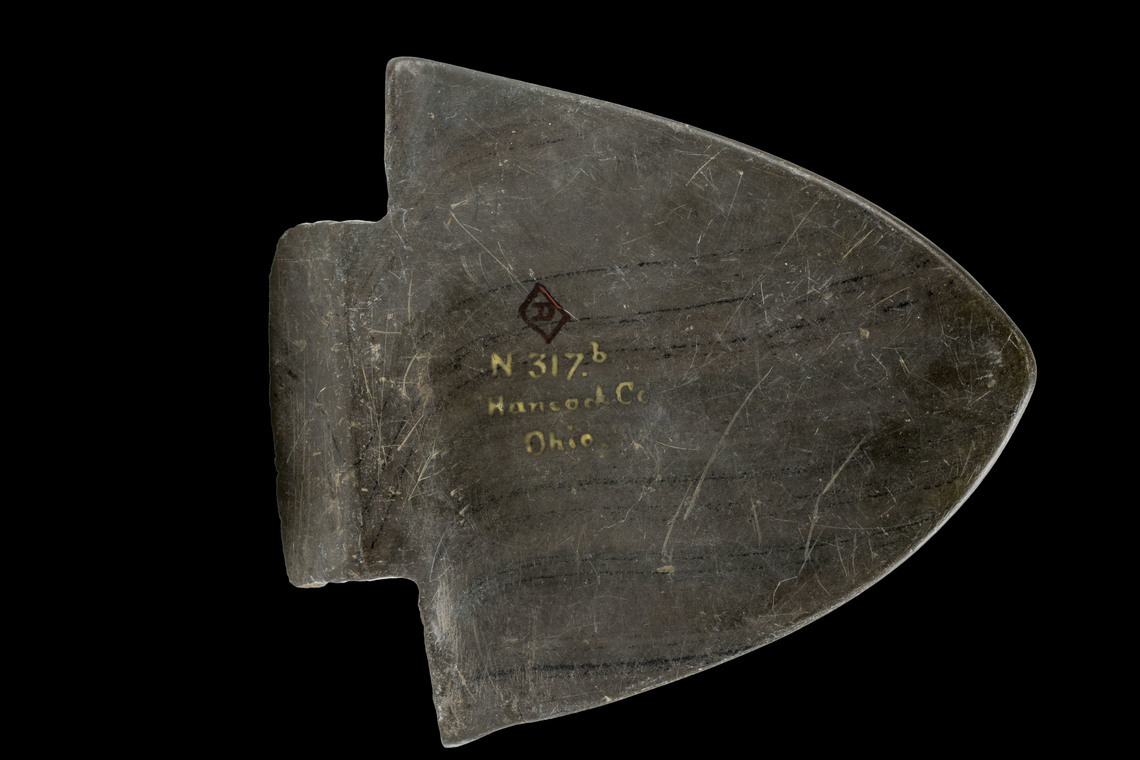 D
N 317.b
Hancock Co
Ohio.